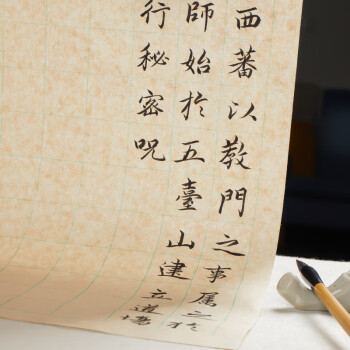 西蕃以教門之事屬之於
師始於五臺山建立道場
行秘密咒